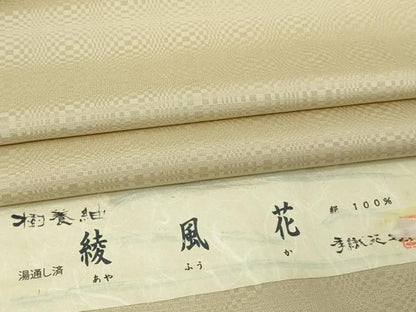 樹養紬
湯通し済
綾 風 花
あや ふう か
絹 100%
手織